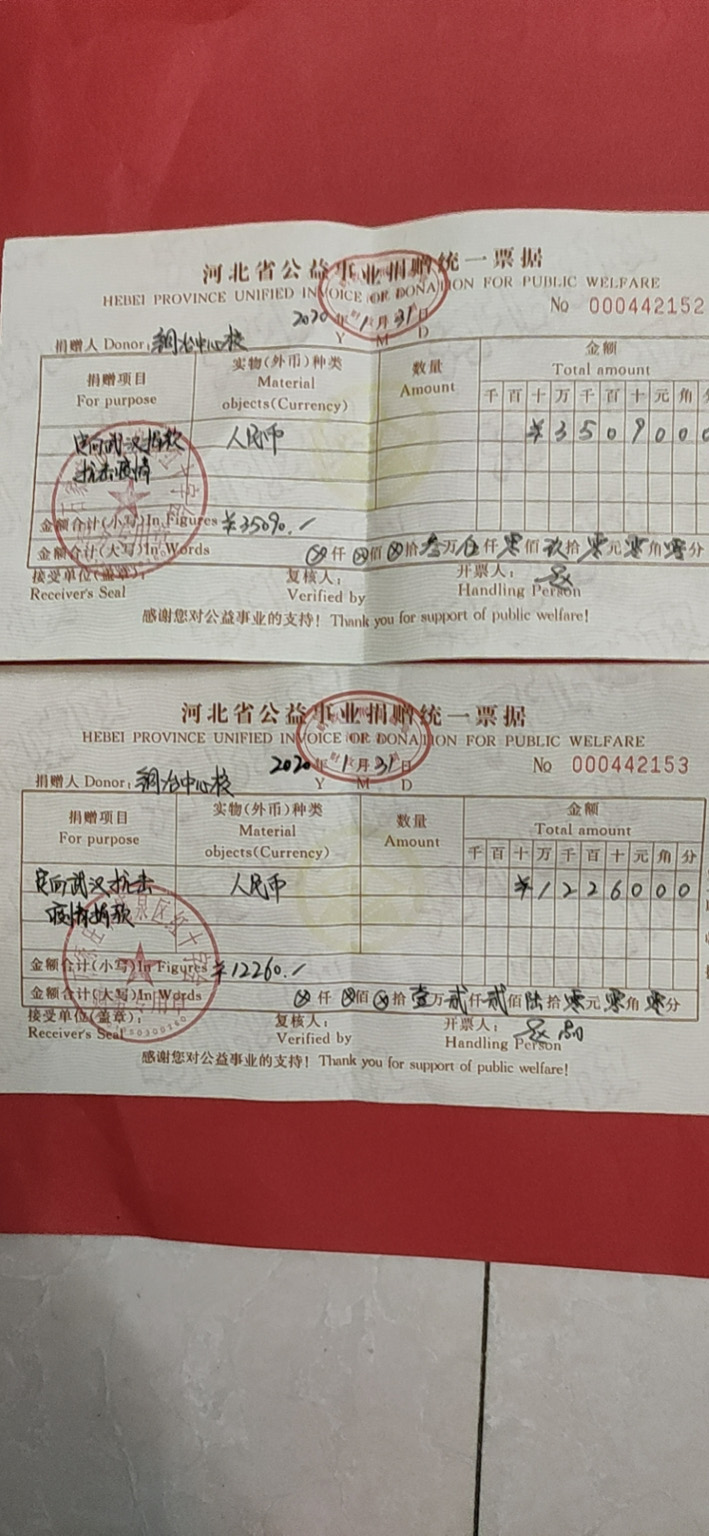 河北省公益事业捐赠统一票据
HEBEI PROVINCE UNIFIED INVOICE OF DONATION FOR PUBLIC WELFARE
No 000442152
2020年1月31日
Y M D
捐赠人 Donor: 铜冶中心校
捐赠项目 实物(外币)种类 数量 金额
For purpose Material Amount Total amount
objects(Currency) 千 百 十 万 千 百 十 元 角
定向武汉捐款 人民币 ¥3509000
抗击疫情
金额合计(小写)In Figures ¥35090./
金额合计(大写)In Words ⊗仟⊗佰⊗拾叁万伍仟零佰玖拾零元零角零分
接受单位(盖章): 复核人: 开票人:
Receiver's Seal Verified by Handling Person
感谢您对公益事业的支持! Thank you for support of public welfare!
河北省公益事业捐赠统一票据
HEBEI PROVINCE UNIFIED INVOICE OF DONATION FOR PUBLIC WELFARE
No 000442153
2020年1月31日
Y M D
捐赠人 Donor: 铜冶中心校
捐赠项目 实物(外币)种类 数量 金额
For purpose Material Amount Total amount
objects(Currency) 千 百 十 万 千 百 十 元 角 分
定向武汉抗击 人民币 ¥1226000
疫情捐款
金额合计(小写)In Figures ¥12260./
金额合计(大写)In Words ⊗仟⊗佰⊗拾壹万贰仟贰佰陆拾零元零角零分
接受单位(盖章): 复核人: 开票人:
Receiver's Seal Verified by Handling Person
感谢您对公益事业的支持! Thank you for support of public welfare!